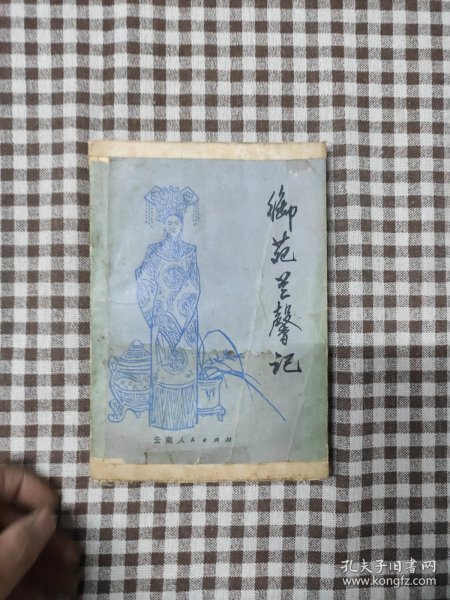 御苑兰馨记
云南人民出版社
孔夫子旧书网
www.kongfz.com